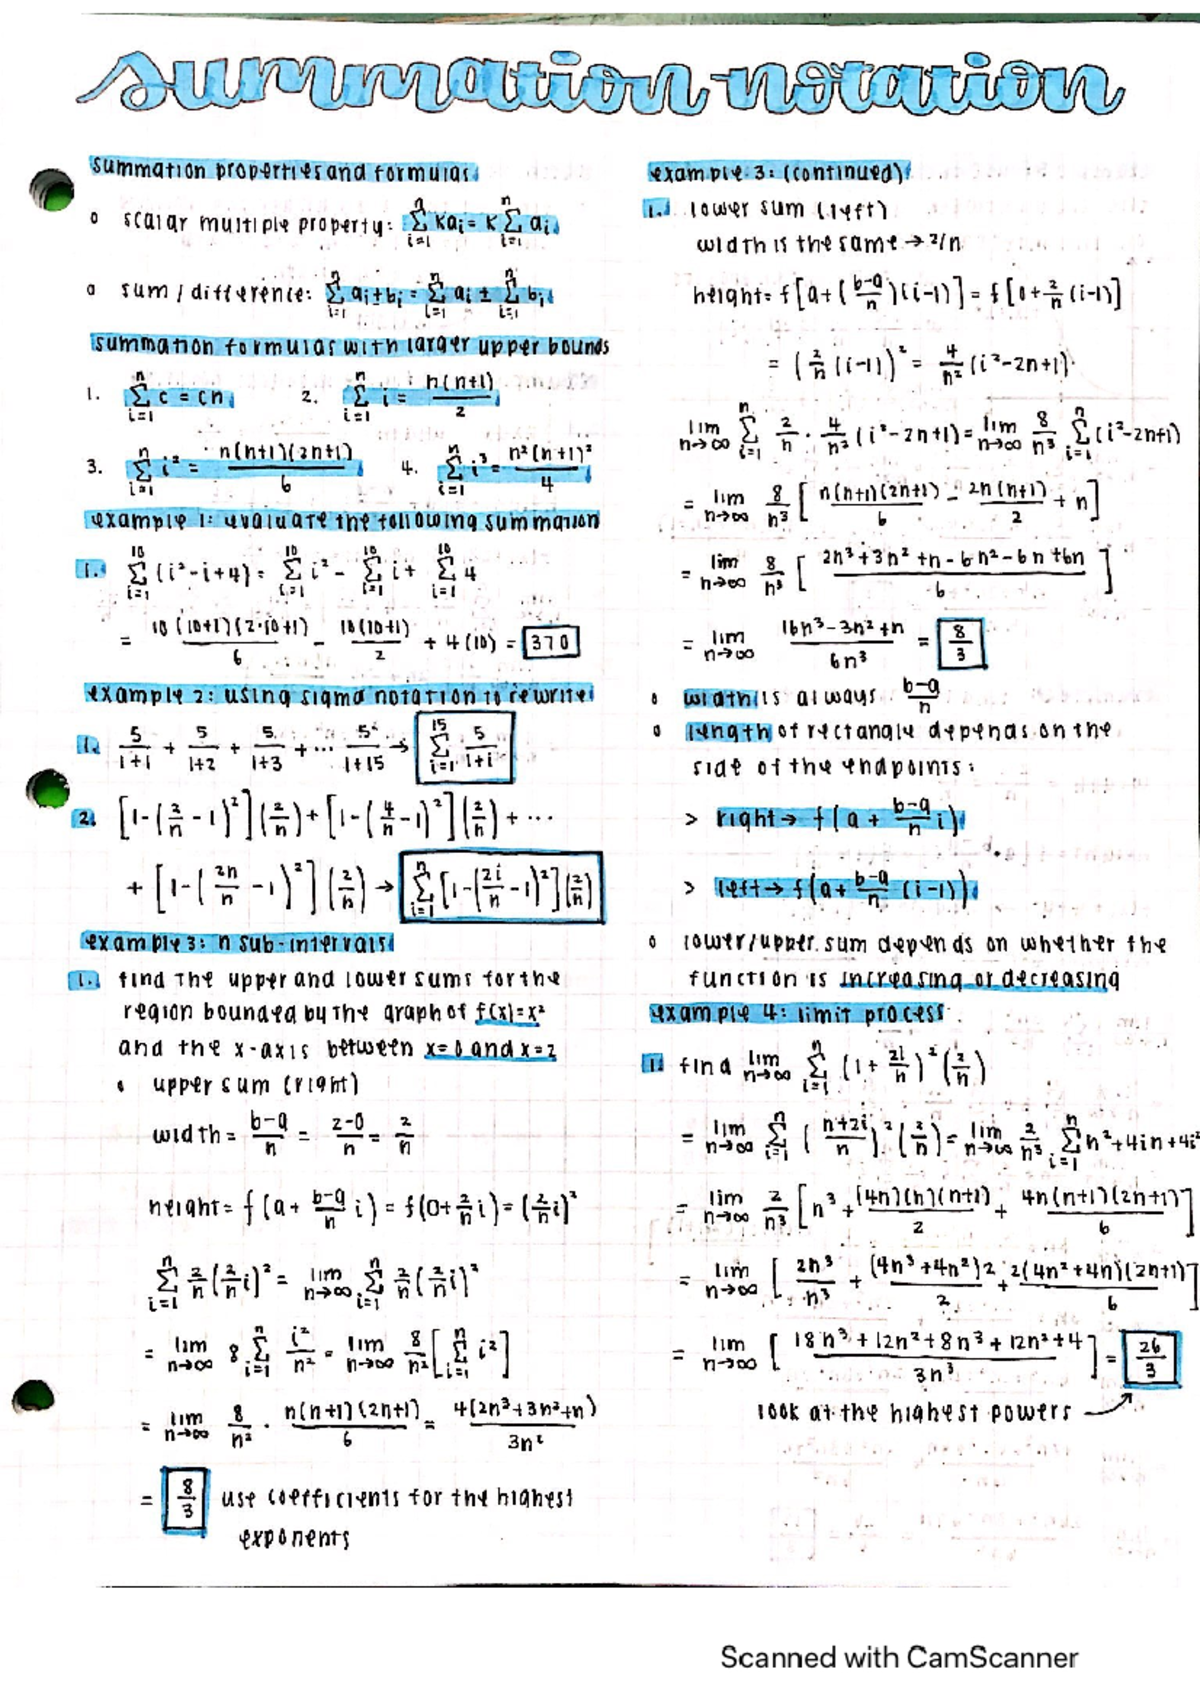 summation notation
summation properties and formulas
o scalar multiple property: n∑i=1 kaᵢ = k n∑i=1 aᵢ
o sum / difference: n∑i=1 aᵢ ± bᵢ = n∑i=1 aᵢ ± n∑i=1 bᵢ
summation formulas with larger upper bounds
1. n∑i=1 c = cn 2. n∑i=1 i = n(n+1)/2
3. n∑i=1 i² = n(n+1)(2n+1)/6 4. n∑i=1 i³ = n²(n+1)²/4
example 1: evaluate the following summation
1. 10∑i=1 (i²-i+4) = 10∑i=1 i² - 10∑i=1 i + 10∑i=1 4
= 10(10+1)(2·10+1)/6 - 10(10+1)/2 + 4(10) = 370
example 2: using sigma notation to rewrite
1. 5/1+1 + 5/1+2 + 5/1+3 + ... 5/1+15 → 15∑i=1 5/1+i
2. [1-(2/n -1)²](2/n) + [1-(4/n -1)²](2/n) + ...
+ [1-(2n/n -1)²](2/n) → n∑i=1 [1-(2i/n -1)²](2/n)
example 3: n sub-intervals
1. find the upper and lower sums for the
region bounded by the graph of f(x)=x²
and the x-axis between x=0 and x=2
• upper sum (right)
width = b-a/n = 2-0/n = 2/n
height = f(a + b-a/n i) = f(0+2/n i) = (2/n i)²
n∑i=1 2/n(2/n i)² = lim n→∞ n∑i=1 2/n(2/n i)²
= lim n→∞ 8 n∑i=1 i²/n² = lim n→∞ 8/n² [n∑i=1 i²]
= lim n→∞ 8/n² · n(n+1)(2n+1)/6 = 4(2n³+3n²+n)/3n²
= 8/3 use coefficients for the highest
exponents
example 3: (continued)
1. lower sum (left)
width is the same → 2/n
height = f[a+(b-a/n)(i-1)] = f[0+2/n(i-1)]
= (2/n(i-1))² = 4/n²(i²-2n+1)
lim n→∞ n∑i=1 2/n · 4/n²(i²-2n+1) = lim n→∞ 8/n³ n∑i=1 (i²-2n+1)
= lim n→∞ 8/n³ [n(n+1)(2n+1)/6 - 2n(n+1)/2 + n]
= lim n→∞ 8/n³ [2n³+3n²+n-6n²-6n+6n/6]
= lim n→∞ 16n³-3n²+n/6n³ = 8/3
o width is always b-a/n
o length of rectangle depends on the
side of the endpoints:
> right → f(a + b-a/n i)
> left → f(a+ b-a/n (i-1))
o lower/upper sum depends on whether the
function is increasing or decreasing
example 4: limit process
1. find lim n→∞ n∑i=1 (1+ 2i/n)²(2/n)
= lim n→∞ n∑i=1 (n+2i/n)²(2/n) = lim n→∞ 2/n³ n∑i=1 n²+4in+4i²
= lim n→∞ 2/n³ [n³ + (4n)(n)(n+1)/2 + 4n(n+1)(2n+1)/6]
= lim n→∞ [2n³/n³ + (4n³+4n²)2/2 + 2(4n²+4n)(2n+1)/6]
= lim n→∞ [18n³+12n²+8n³+12n²+4/3n³] = 26/3
look at the highest powers
Scanned with CamScanner